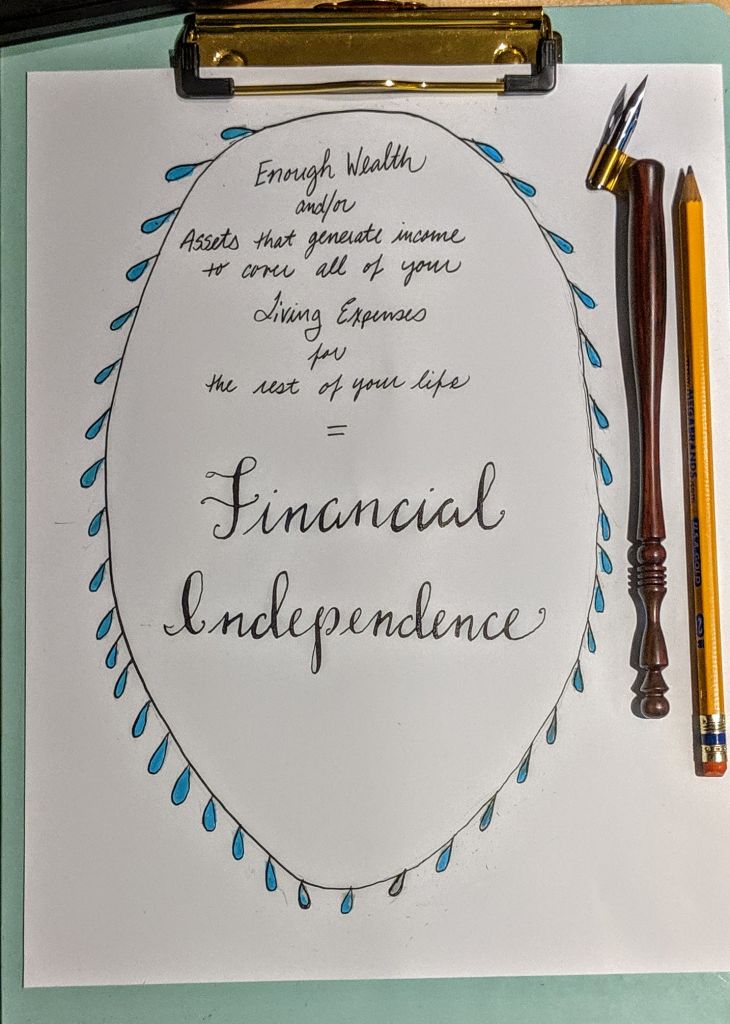 Enough Wealth
and/or
Assets that generate income
to cover all of your
Living Expenses
for
the rest of your life
=
Financial
Independence
MEGABRANDS
USA GOLD